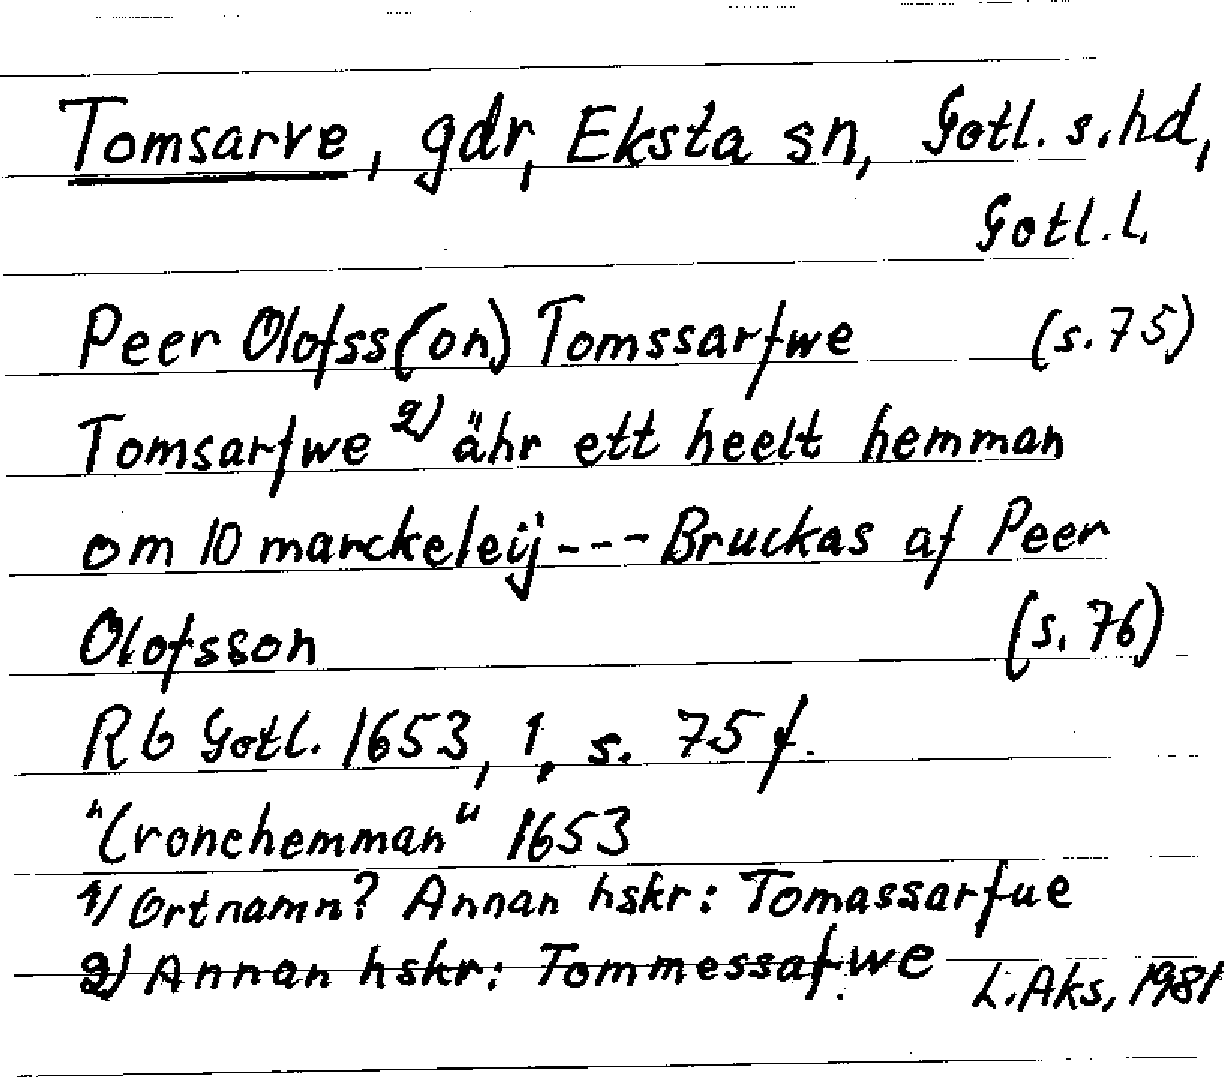 Tomsarve, gdr, Eksta sn, Gotl. s. hd,
Gotl. l.
Peer Olofss(on) Tomssarfwe (s. 75)
Tomsarfwe 2) ähr ett heelt hemman
om 10 marckeleij --- Bruckas af Peer
Olofsson (s. 76)
Rb Gotl. 1653, 1, s. 75 f.
"Cronehemman" 1653
1/ Ortnamn? Annan hskr: Tomassarfue
2) Annan hskr: Tommessafwe
L. Aks, 1981